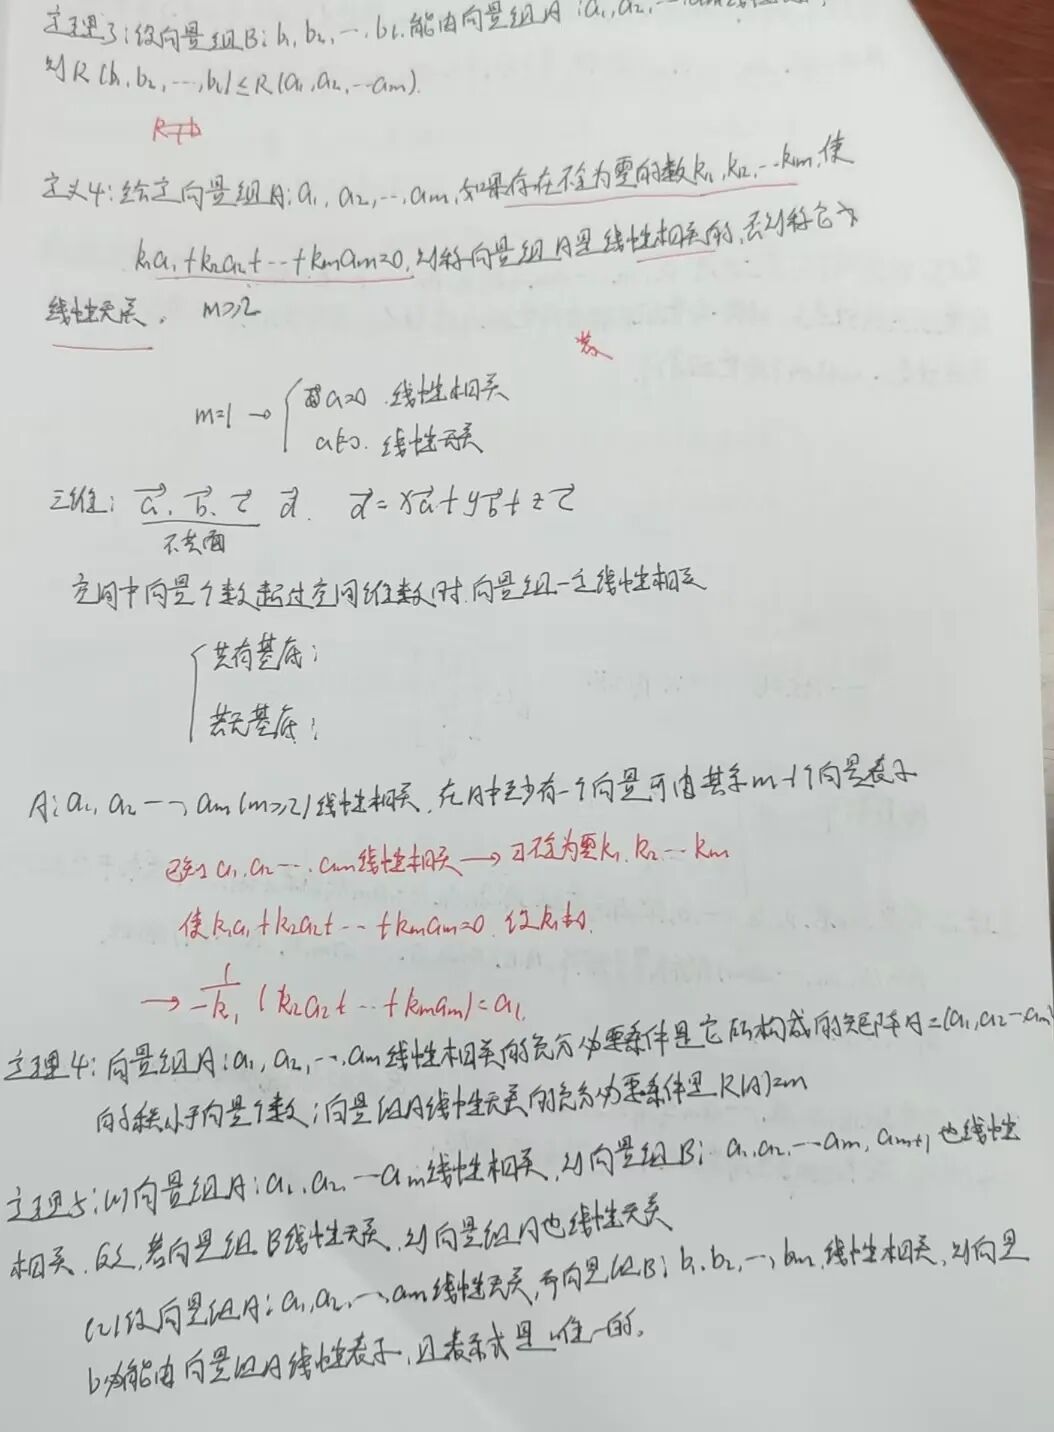 定理3:设向量组B:b₁,b₂,…,bₗ.能由向量组A:a₁,a₂,…,am线性表示,
则R(b₁,b₂,…,bₗ)≤R(a₁,a₂,…am).
定义4:给定向量组A:a₁,a₂,…,am,如果存在不全为零的数k₁,k₂,…km,使
k₁a₁+k₂a₂+…+kmam=0,则称向量组A是线性相关的,否则称它为
线性无关. m≥2
m=1→{ 当a=0.线性相关
a≠0.线性无关
三维: a⃗、b⃗、c⃗ d⃗. d⃗=xa⃗+yb⃗+zc⃗
不共面
空间中向量个数超过空间维数时.向量组一定线性相关
{ 若有基底;
若无基底;
A:a₁,a₂…,am(m≥2)线性相关.在A中至少有一个向量可由其余m-1个向量表示
已知a₁,a₂…,am线性相关→∃不全为零k₁,k₂…km
使k₁a₁+k₂a₂+…+kmam=0.设k₁≠0.
→1/-k₁(k₂a₂+…+kmam)=a₁.
定理4:向量组A:a₁,a₂,…,am线性相关的充分必要条件是它所构成的矩阵A=(a₁,a₂…am)
的秩小于向量个数;向量组A线性无关的充分必要条件是R(A)=m
定理5:(1)向量组A:a₁,a₂,…am线性相关,则向量组B:a₁,a₂,…am,am+1也线性
相关.反之,若向量组B线性无关,则向量组A也线性无关
(2)设向量组A:a₁,a₂,…,am线性无关,而向量组B:b₁,b₂,…,bm,线性相关,则向量
b必能由向量组A线性表示,且表示式是唯一的.